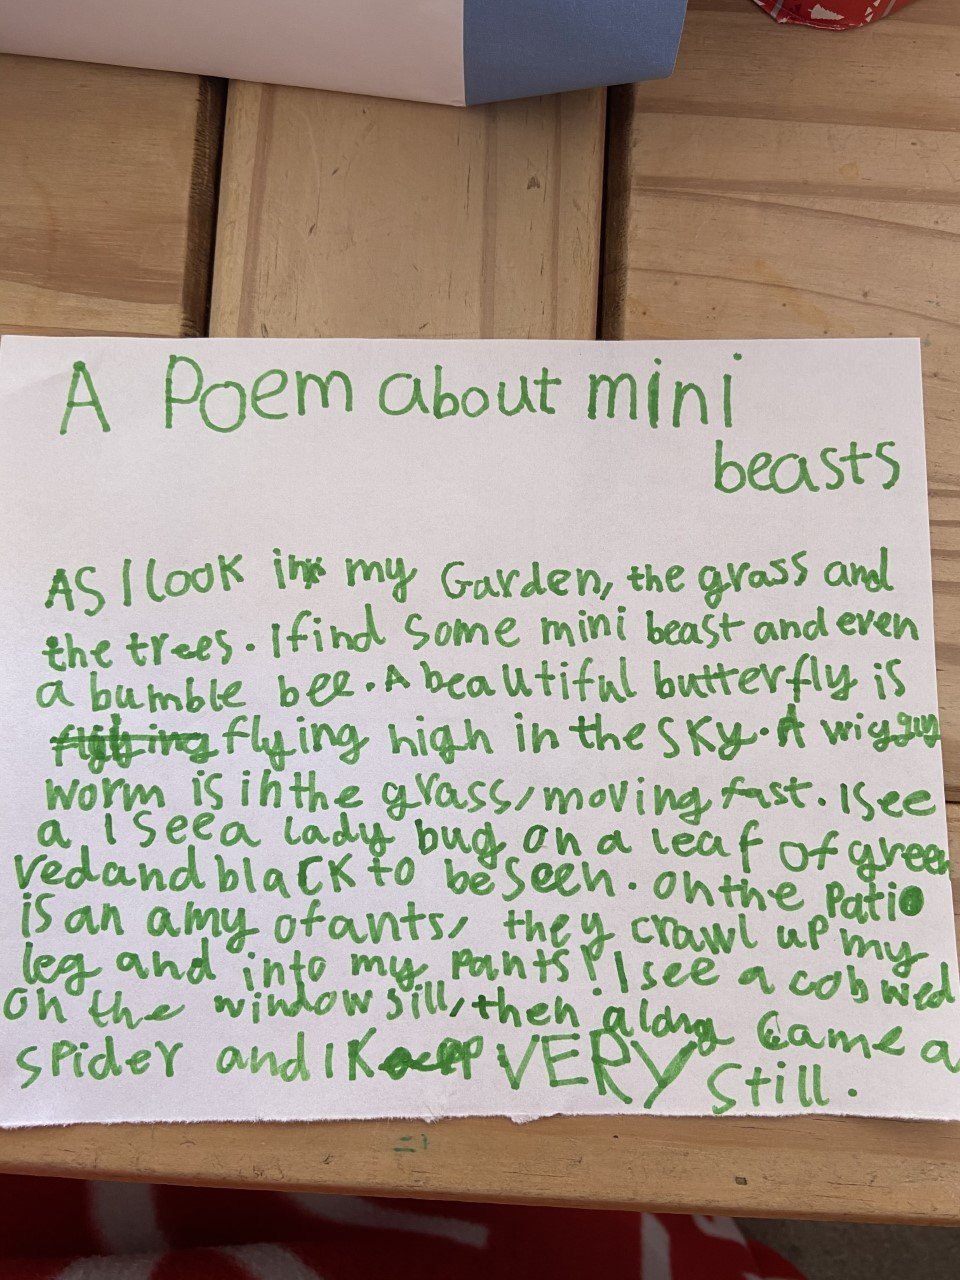 A Poem about mini
beasts
As I look in my Garden, the grass and
the trees. I find some mini beast and even
a bumble bee. A beautiful butterfly is
flying high in the sky. A wigguy
worm is in the grass, moving fast. I see
a I see a lady bug on a leaf of green
red and black to be seen. on the patio
is an amy of ants, they crawl up my
leg and into my pants! I see a cob wed
on the window sill, then along came a
spider and I keep VERY still.